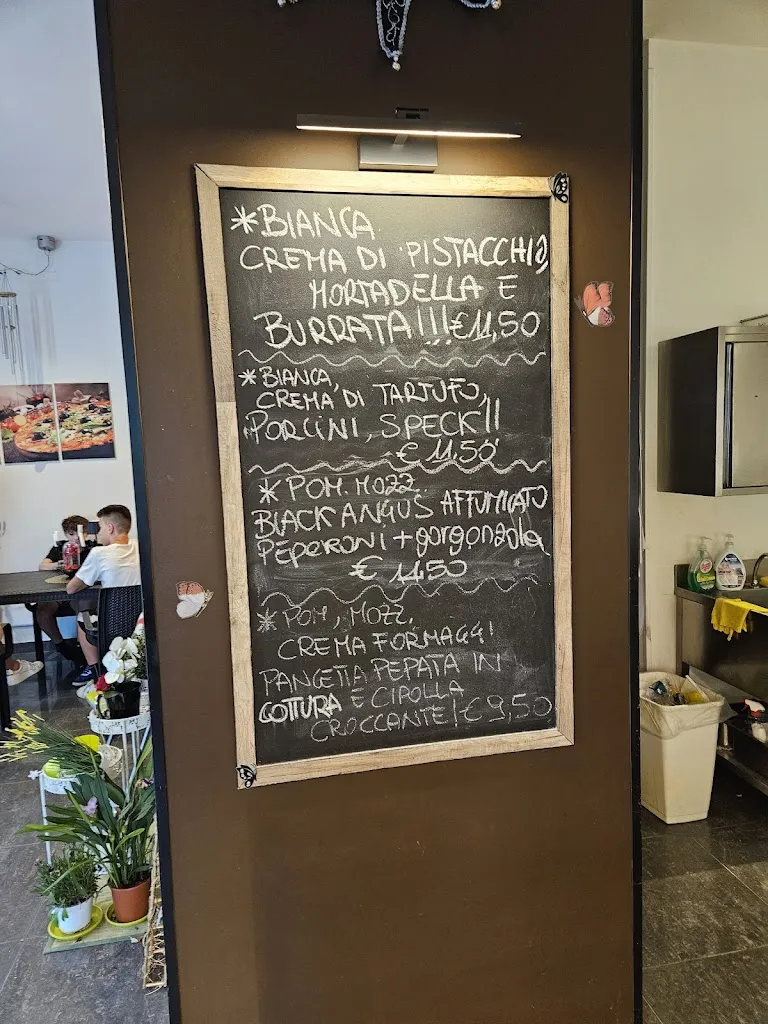 *BIANCA
CREMA DI PISTACCHIO
MORTADELLA E
BURRATA!!!€11,50
*BIANCA,
CREMA DI TARTUFO,
PORCINI, SPECK!!
€ 11.50
* POM. MOZZ.
BLACK ANGUS AFFUMICATO
PEPERONI + gorgonzola
€ 11.50
* POM, MOZZ,
CREMA FORMAGGI
PANCETTA PEPATA IN
COTTURA E CIPOLLA
CROCCANTE!€9,50